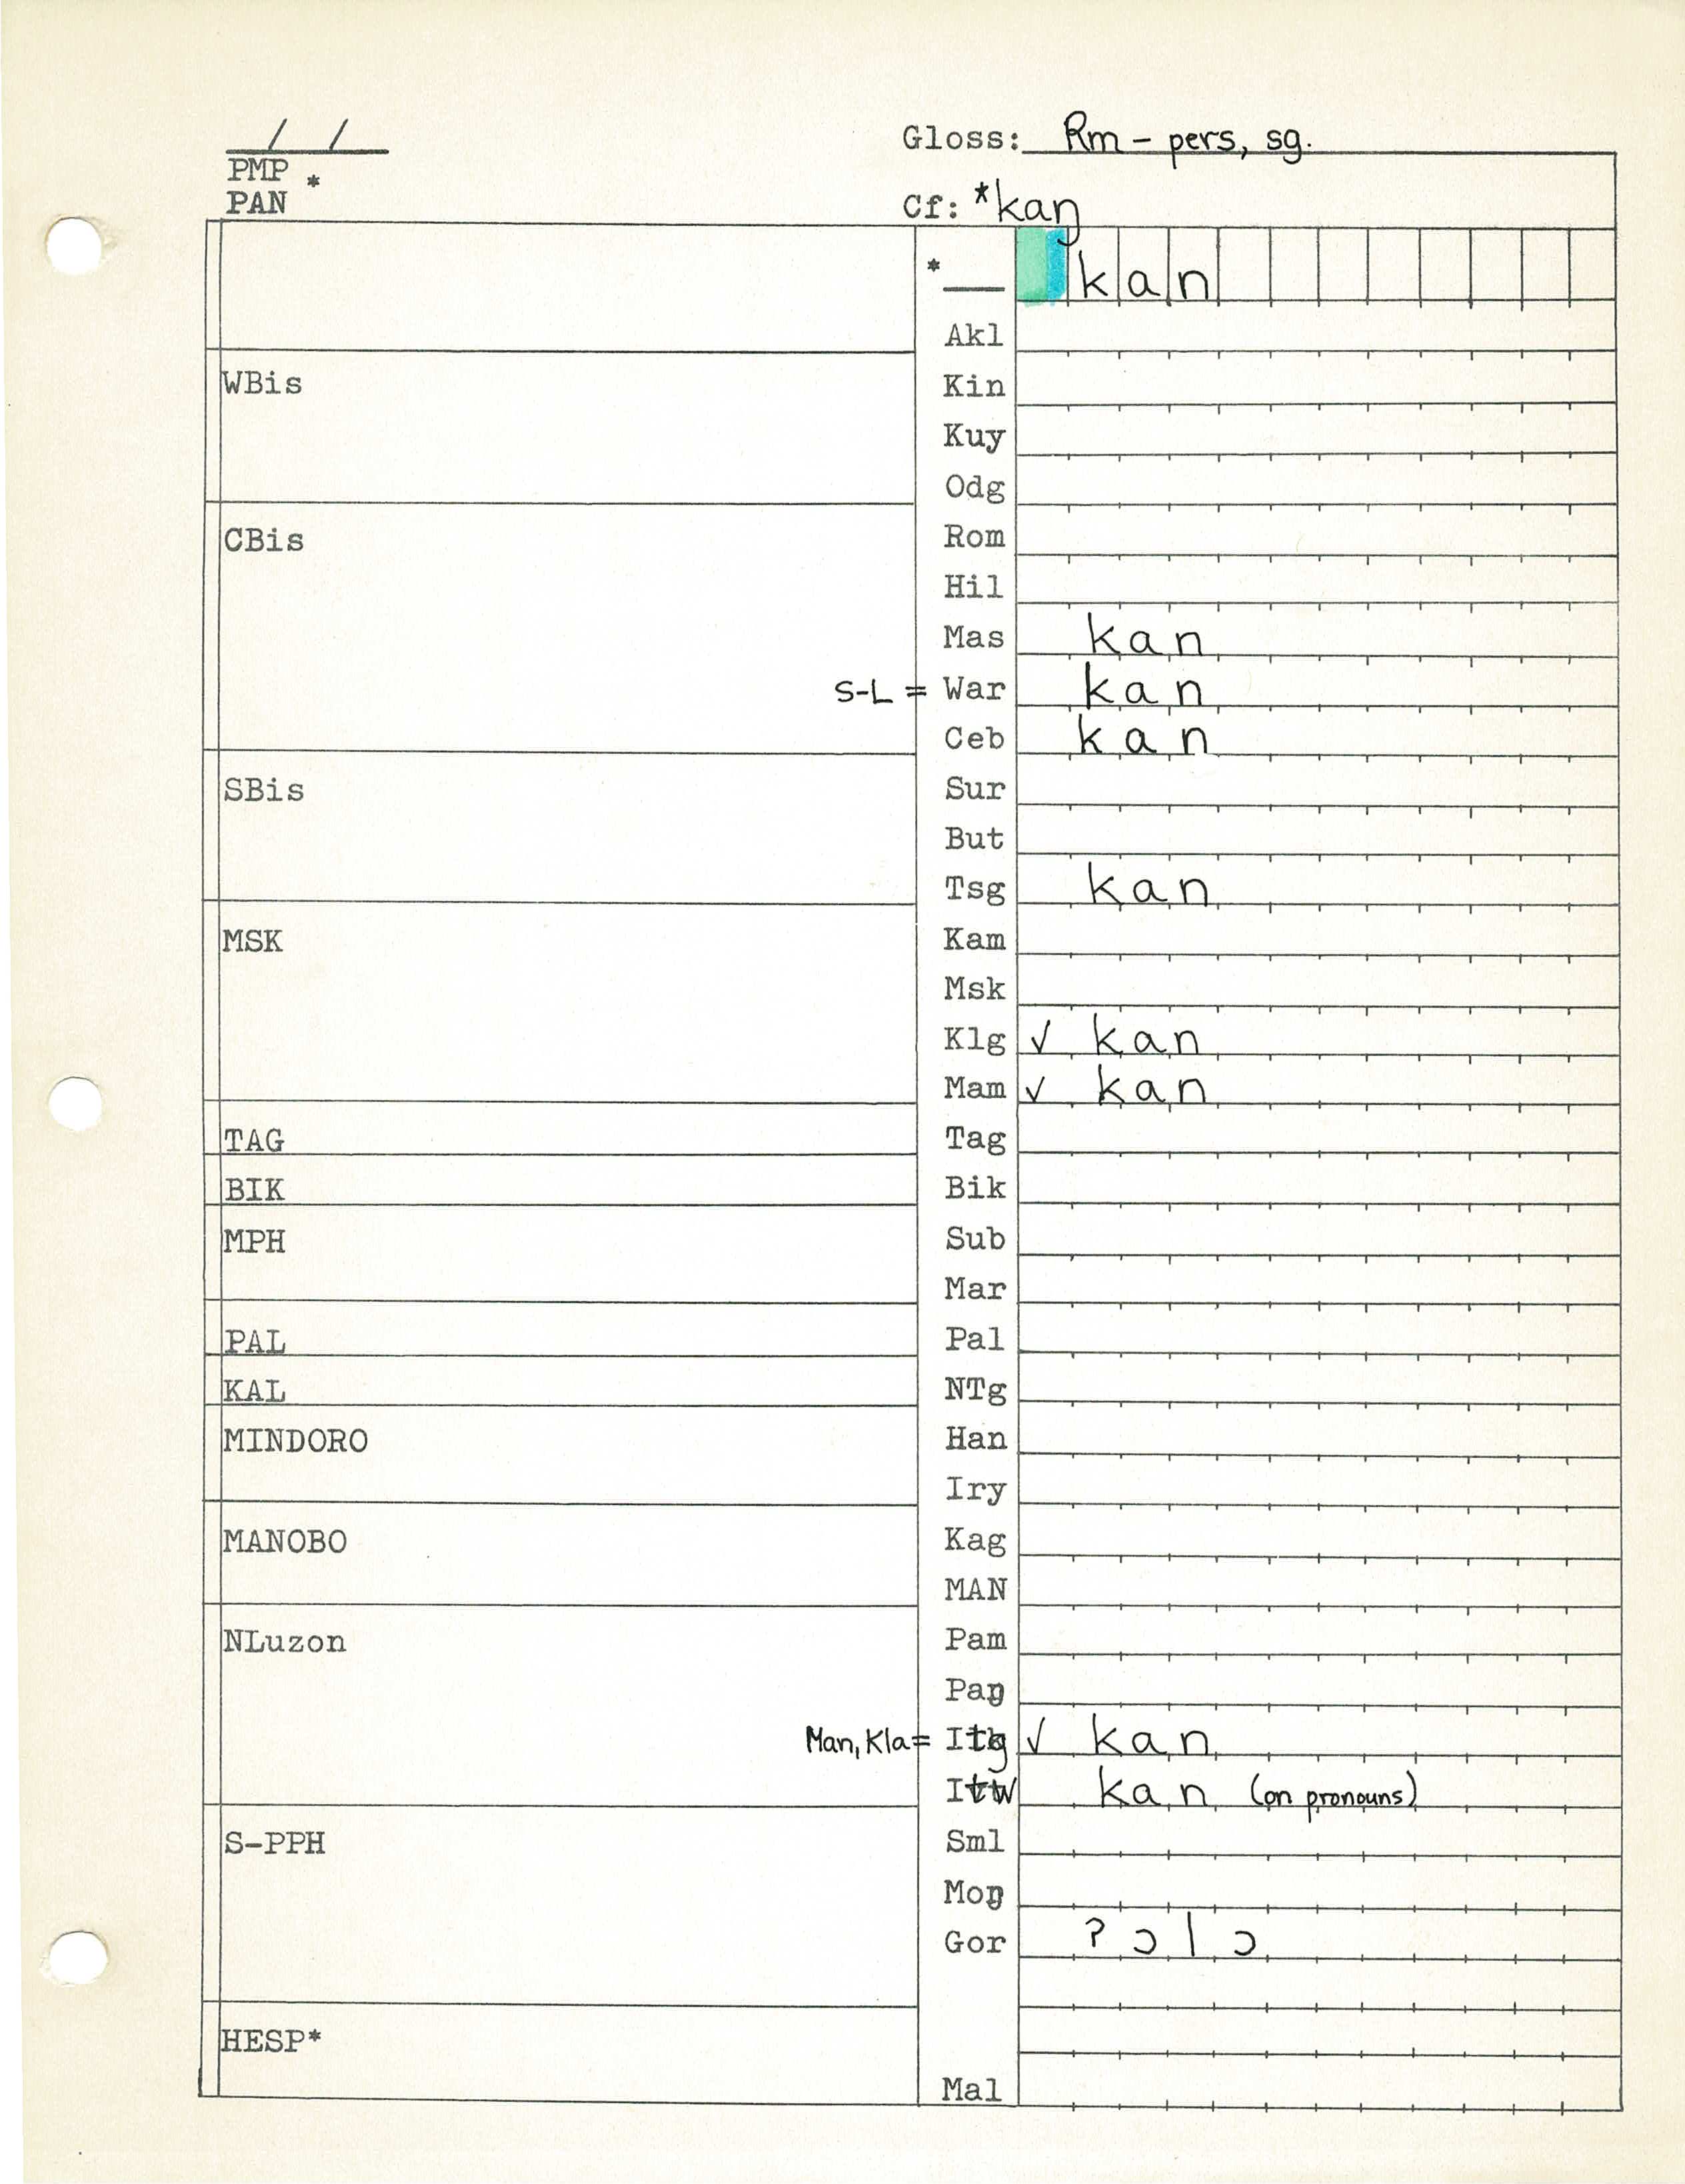 / /
PMP *
PAN
Gloss: Rm - pers, sg.
Cf: *kaŋ
* kan
Akl
WBis
Kin
Kuy
Odg
CBis
Rom
Hil
Mas kan
S-L = War kan
Ceb kan
SBis
Sur
But
Tsg kan
MSK
Kam
Msk
Klg ✓ kan
Mam ✓ kan
TAG
Tag
BIK
Bik
MPH
Sub
Mar
PAL
Pal
KAL
NTg
MINDORO
Han
Iry
MANOBO
Kag
MAN
NLuzon
Pam
Paŋ
Man, Kla = Itg ✓ kan
Itw kan (on pronouns)
S-PPH
Sml
Moŋ
Gor ʔɔlɔ
HESP*
Mal